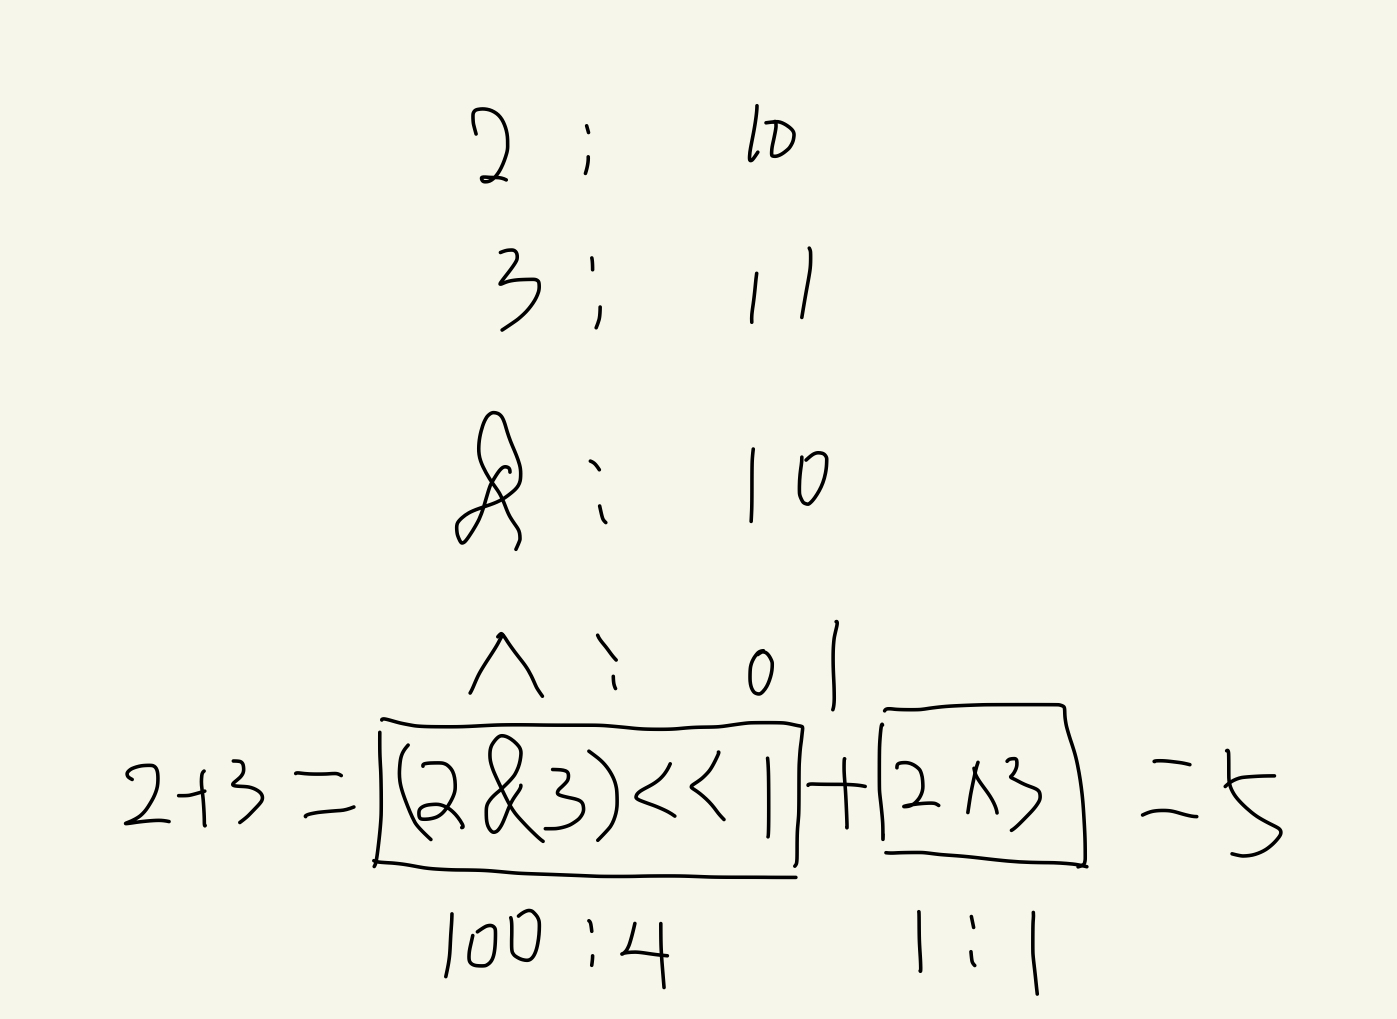 2 : 10
3 : 11
& : 10
^ : 01
2+3 = (2&3)<<1 + 2^3 = 5
100 : 4 1 : 1